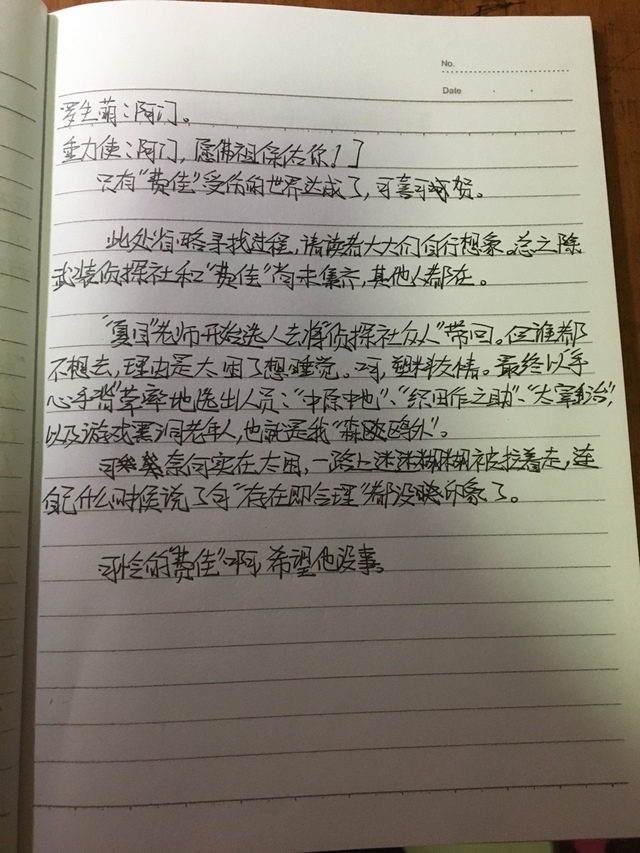 No.
Date
罗生萌：阿门。
重力使：阿门，愿佛祖保佑你！］
只有“费佳”受伤的世界达成了，可喜可贺。
此处省略寻找过程，请读者大大们自行想象。总之除
武装侦探社和“费佳”尚未集齐，其他人都在。
“夏目”老师开始选人去将“侦探社众人”带回。但谁都
不想去，理由是太困了想睡觉。呵，塑料友情。最终以“手
心手背”草率地选出人员：“中原中也”、“织田作之助”、“太宰治”，
以及游戏黑洞老年人，也就是我“森欧外”。
可奈何实在太困，一路上迷迷糊糊被拉着走，连
自己什么时候说了句“存在即合理”都没印象了。
可怜的“费佳”啊，希望他没事。